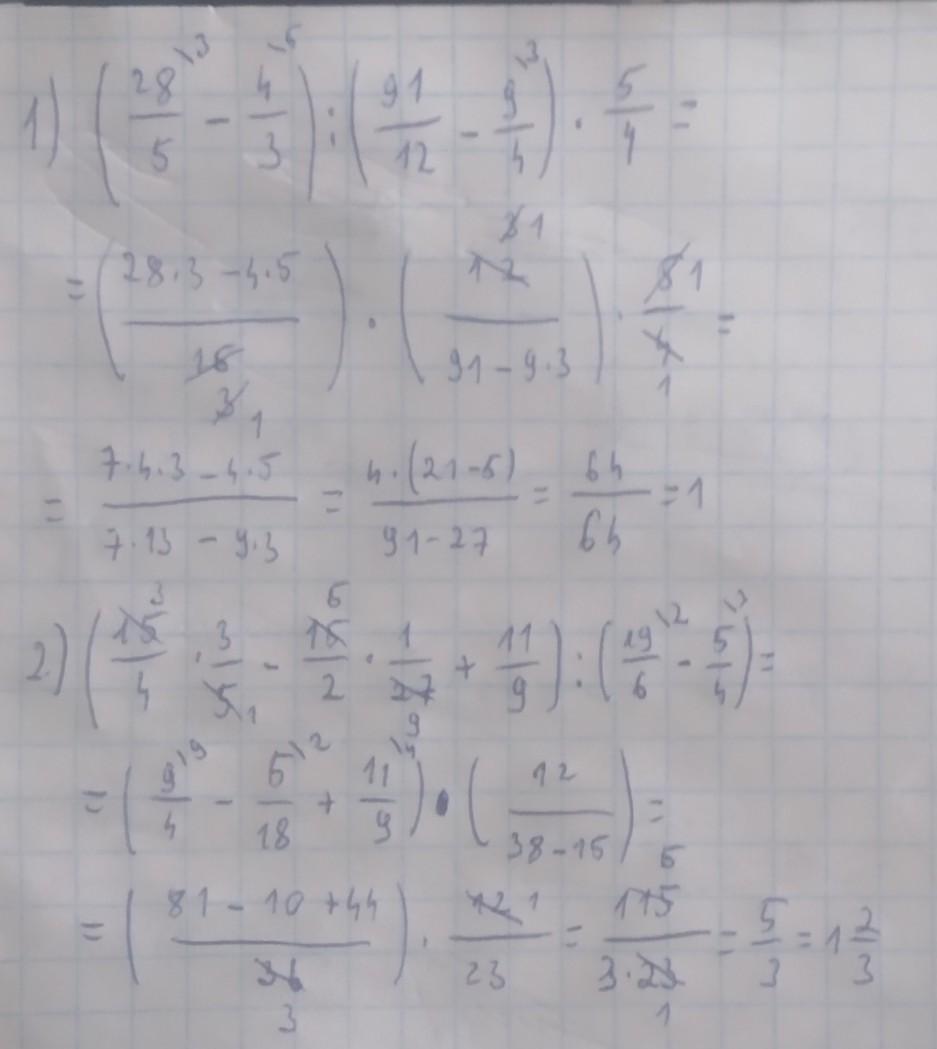 1) (28/5 \3 - 4/3 \5) : (91/12 - 9/4 \3) · 5/4 =
= (28·3-4·5 / 15 3 1) · (12 3 1 / 91-9·3) · 5 1 / 4 1 =
= 7·4·3-4·5 / 7·13-9·3 = 4·(21-5) / 91-27 = 64/64 = 1
2) (15 3 / 4 · 3 / 5 1 - 15 5 / 2 · 1 / 27 9 + 11/9) : (19/6 \2 - 5/4 \3) =
= (9/4 \9 - 5/18 \2 + 11/9 \4) · (12 / 38-15) =
= (81-10+44 / 36 3) · 12 1 / 23 = 115 5 / 3·23 1 = 5/3 = 1 2/3